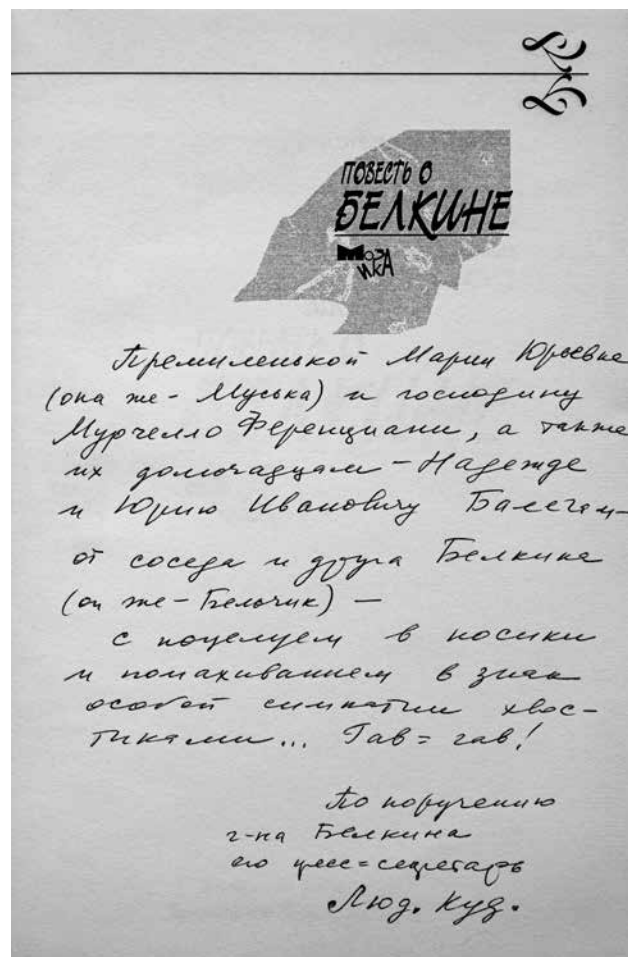 ПОВЕСТЬ О
БЕЛКИНЕ
МОЗАИКА
Премиленькой Марии Юрьевне
(она же - Муська) и господину
Мурчелло Ференциани, а также
их домочадцам - Надежде
и Юрию Ивановичу
от соседа и друга Белкина
(он же - Бельчик) —
с поцелуем в носики
и помахиванием в знак
особой симпатии хвос-
тиками... Гав = гав!
По поручению
г-на Белкина
его пресс = секретарь
Люд. Куд.